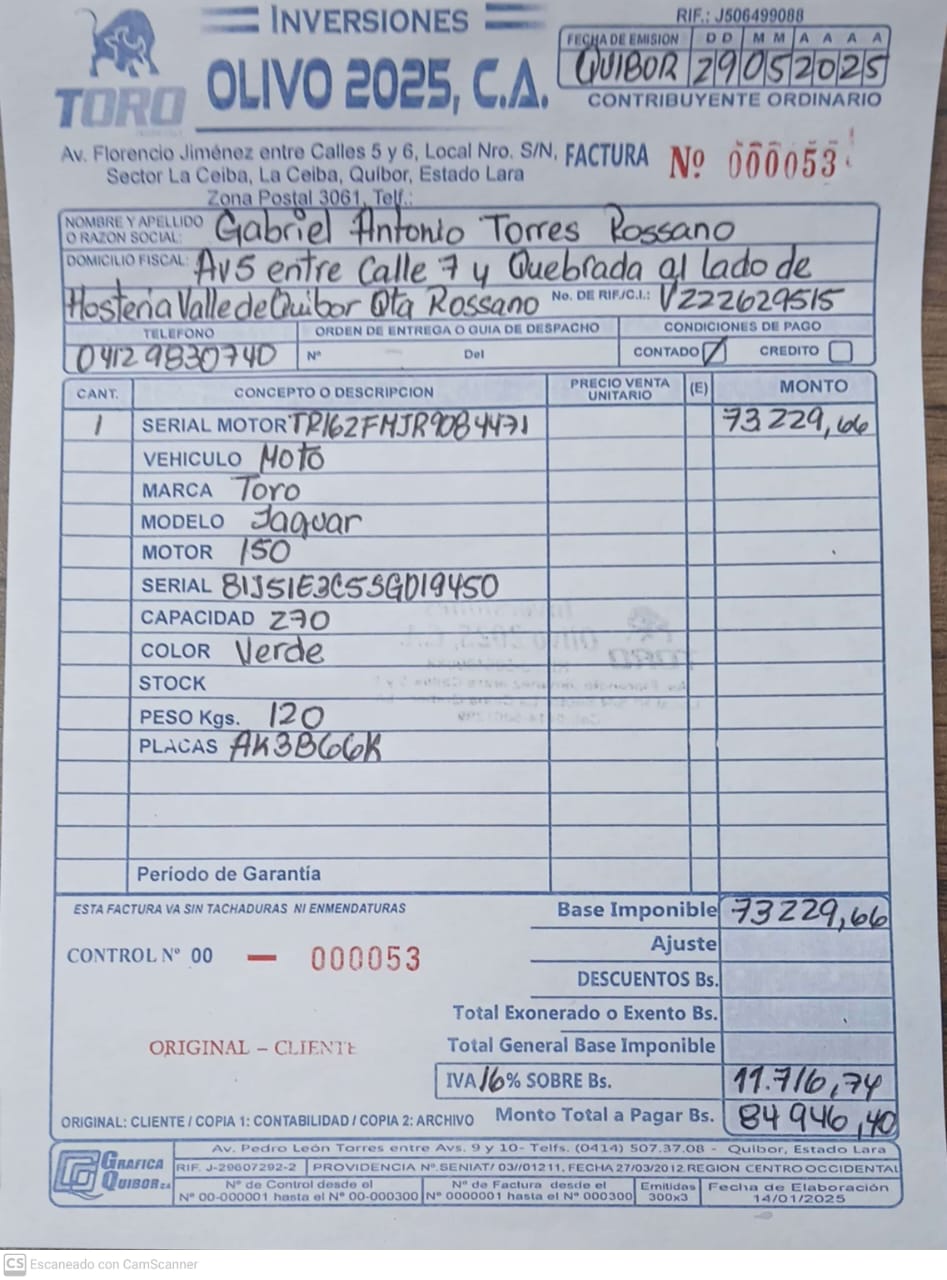 INVERSIONES
RIF.: J506499088
FECHA DE EMISION D D M M A A A A
QUIBOR 29 05 2025
OLIVO 2025, C.A.
TORO
CONTRIBUYENTE ORDINARIO
Av. Florencio Jiménez entre Calles 5 y 6, Local Nro. S/N,
Sector La Ceiba, La Ceiba, Quibor, Estado Lara
Zona Postal 3061, Telf.:
FACTURA Nº 000053
NOMBRE Y APELLIDO O RAZON SOCIAL: Gabriel Antonio Torres Rossano
DOMICILIO FISCAL: Av 5 entre Calle 7 y Quebrada al lado de
Hosteria Valle de Quibor Qta Rossano No. DE RIF/C.I.: V222629515
TELEFONO ORDEN DE ENTREGA O GUIA DE DESPACHO CONDICIONES DE PAGO
0412 9830740 Nº — Del CONTADO CREDITO
CANT. CONCEPTO O DESCRIPCION PRECIO VENTA UNITARIO (E) MONTO
1 SERIAL MOTOR TR162FMJR9084471 73229,66
VEHICULO Moto
MARCA Toro
MODELO Jaguar
MOTOR 150
SERIAL 81J51E3C5SGD19450
CAPACIDAD 270
COLOR Verde
STOCK
PESO Kgs. 120
PLACAS AK3B66K
Período de Garantía
ESTA FACTURA VA SIN TACHADURAS NI ENMENDATURAS
Base Imponible 73229,66
Ajuste
CONTROL Nº 00 — 000053
DESCUENTOS Bs.
Total Exonerado o Exento Bs.
ORIGINAL – CLIENTE
Total General Base Imponible
IVA 16% SOBRE Bs. 11.716,74
ORIGINAL: CLIENTE / COPIA 1: CONTABILIDAD / COPIA 2: ARCHIVO
Monto Total a Pagar Bs. 84946,40
GRAFICA QUIBOR C.A.
Av. Pedro León Torres entre Avs. 9 y 10- Telfs. (0414) 507.37.08 - Quibor, Estado Lara
RIF. J-29607292-2 PROVIDENCIA Nº.SENIAT/ 03/01211, FECHA 27/03/2012 REGION CENTRO OCCIDENTAL
Nº de Control desde el Nº 00-000001 hasta el Nº 00-000300
Nº de Factura desde el Nº 0000001 hasta el Nº 000300
Emitidas 300x3
Fecha de Elaboración 14/01/2025
CS Escaneado con CamScanner